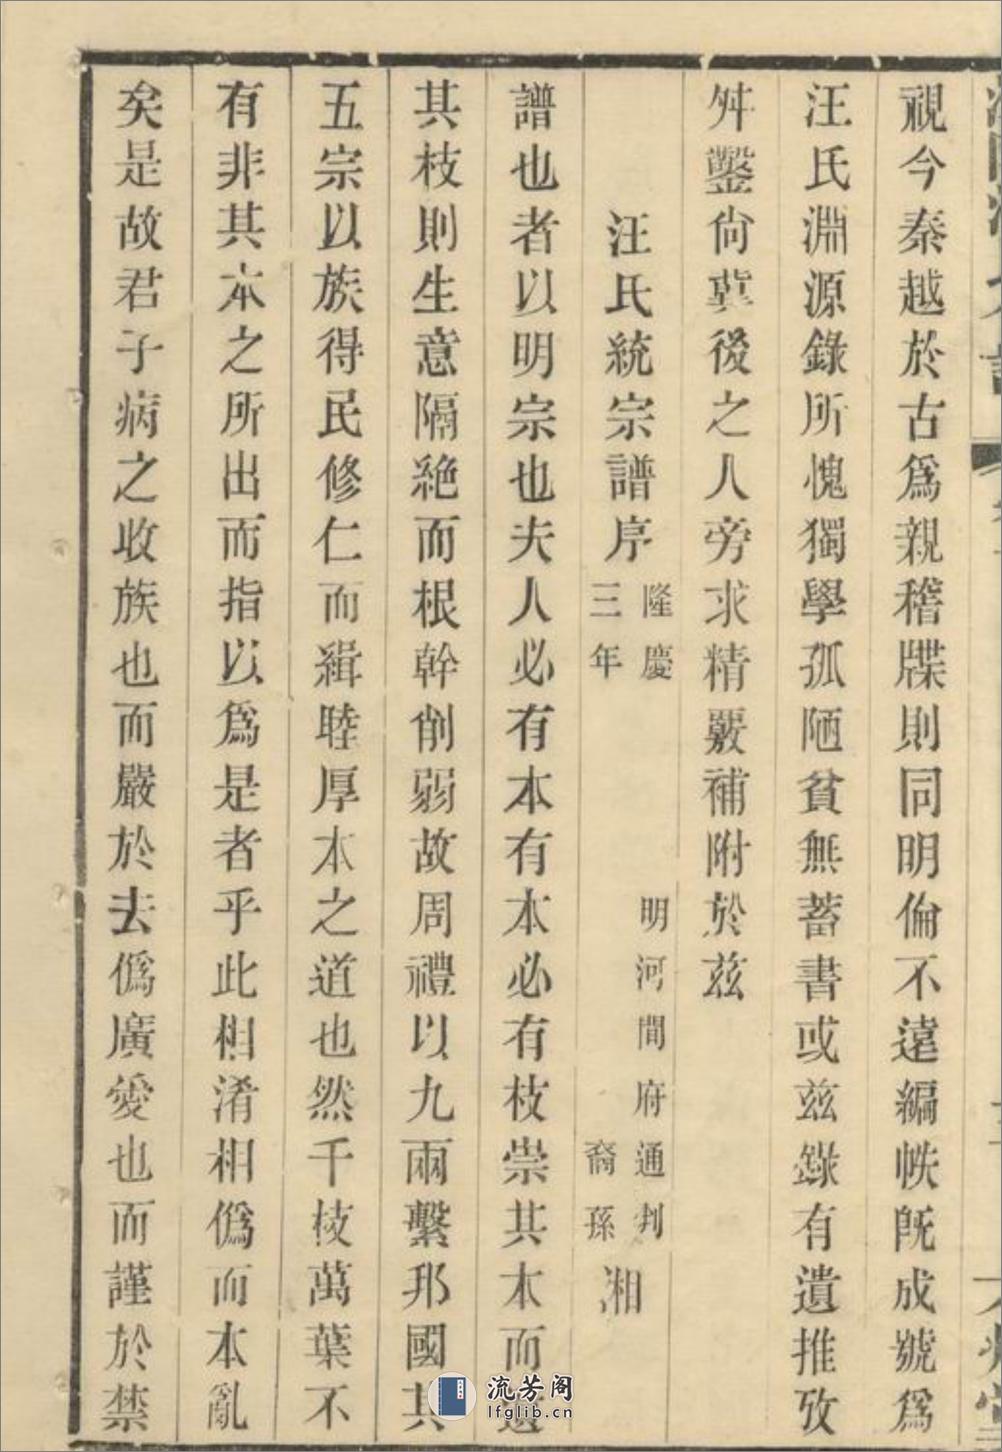 視今秦越於古爲親稽牒則同明倫不遠編帙旣成號爲
汪氏淵源錄所愧獨學孤陋貧無蓄書或茲錄有遺推攷
舛鑿尙冀後之人旁求精覈補附於茲
汪氏統宗譜序 隆慶三年 明河間府通判裔孫 湘
譜也者以明宗也夫人必有本有本必有枝崇其本而遺
其枝則生意隔絶而根幹削弱故周禮以九兩繫邦國其
五宗以族得民修仁而緝睦厚本之道也然千枝萬葉不
有非其本之所出而指以爲是者乎此相淆相僞而本亂
矣是故君子病之收族也而嚴於去僞廣愛也而謹於禁
流芳阁
lfglib.cn